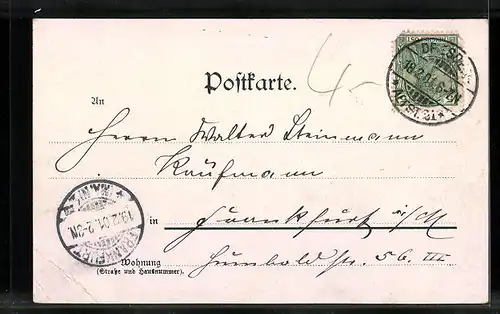 Postkarte.
4-
An
Herrn Walter Steinmann
Kaufmann
in Frankfurt a/M
Humboldstr. 56 III
Wohnung
(Straße und Hausnummer).
FRANKFURT
19.2.01.2-3N.
18.2.01